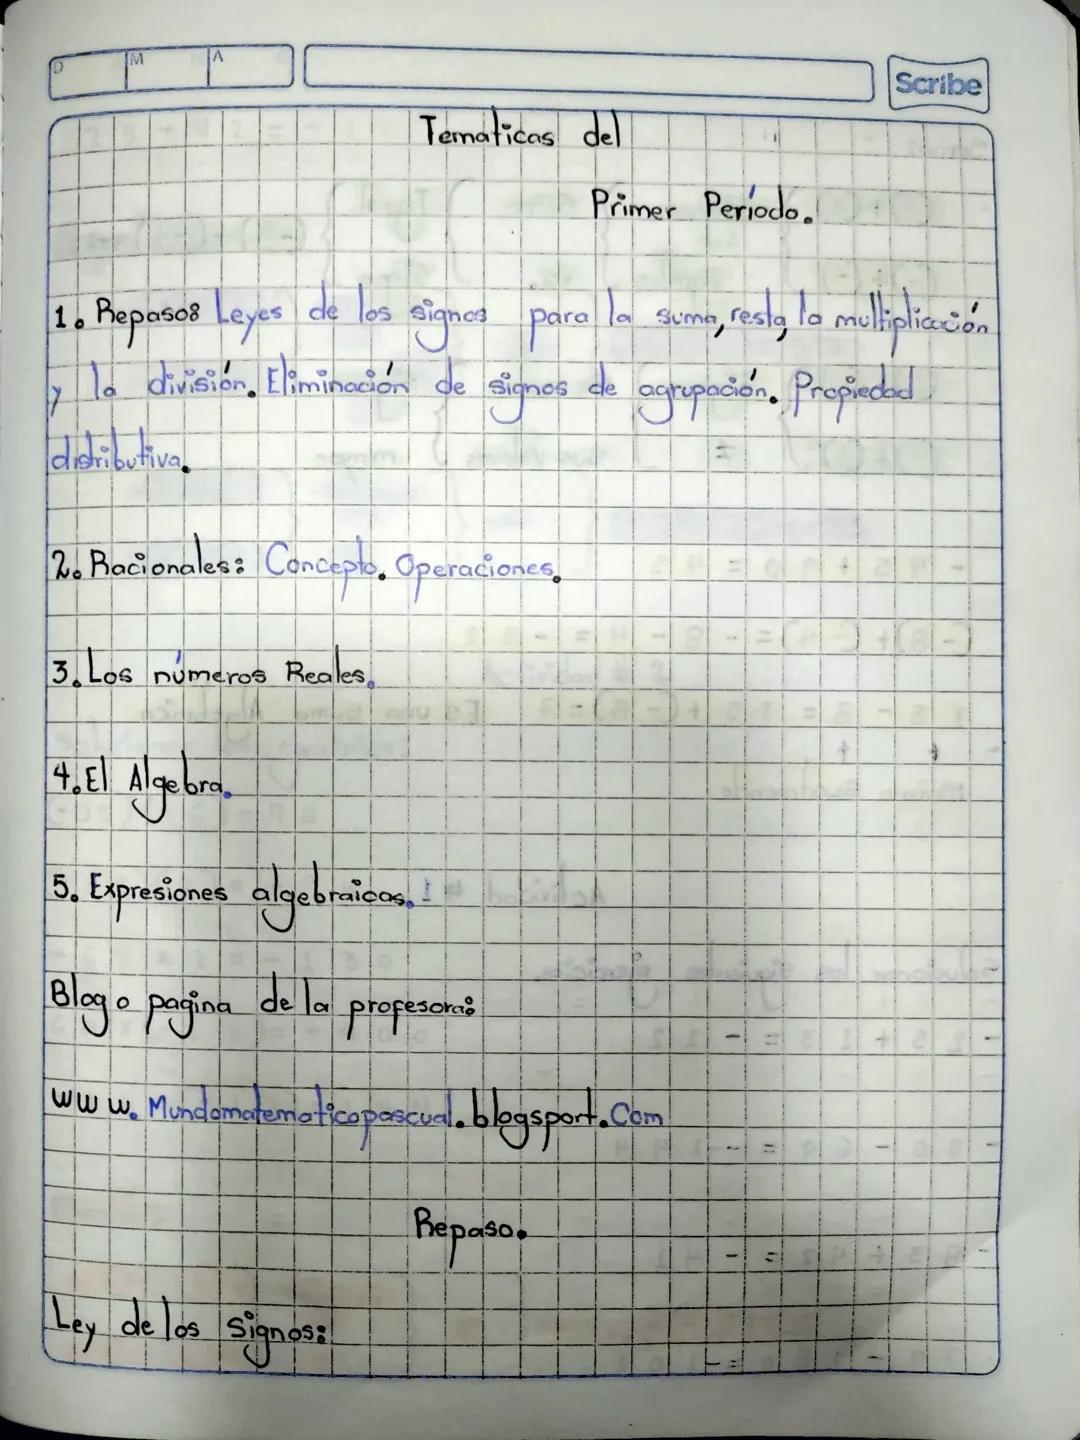 D M A
Scribe
Tematicas del
Primer Período.
1. Repaso: Leyes de los signos para la suma, resta, la multiplicación
y la división. Eliminación de signos de agrupación. Propiedad
distributiva.
2. Racionales: Concepto. Operaciones.
3. Los números Reales.
4. El Algebra.
5. Expresiones algebraicas.
Blog o pagina de la profesora:
www.Mundomatematicopascual.blogsport.Com
Repaso.
Ley de los signos: